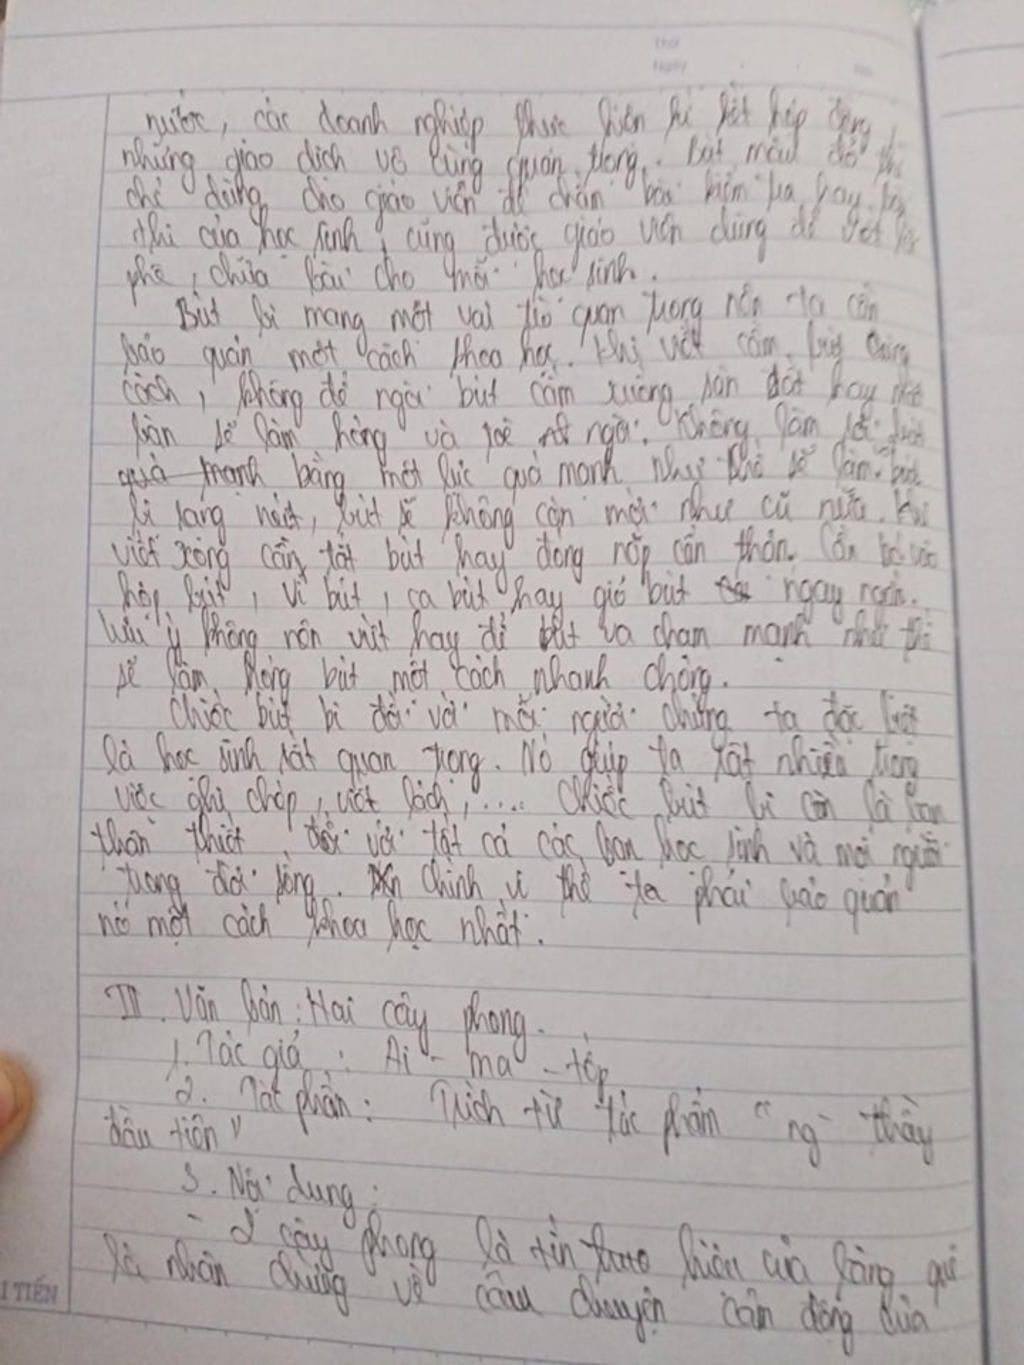 Thứ
Ngày No.
nước, các doanh nghiệp thực hiện kí kết hợp đồng,
những giao dịch vô cùng quan trọng. Bút màu đỏ thì
chỉ dùng cho giáo viên để chấm bài kiểm tra hay bài
thi của học sinh, cũng được giáo viên dùng để viết lời
phê, chữa bài cho mỗi học sinh.
Bút bi mang một vai trò quan trọng nên ta cần
bảo quản một cách khoa học. Khi viết cầm bút đúng
cách, không để ngòi bút cắm xuống sàn đất hay mặt
bàn sẽ làm hỏng và toè ngòi. Không làm rơi bút
quá mạnh bằng một lực quá mạnh như thế sẽ làm bút
bi nứt, bút sẽ không còn mới như cũ nữa. Khi
viết xong cần tắt bút hay đóng nắp cẩn thận. Cần bỏ vào
hộp bút, ví bút, ca bút hay giỏ bút ngay ngắn.
Lưu ý không nên vứt hay để bút va chạm mạnh như thế
sẽ làm hỏng bút một cách nhanh chóng.
Chiếc bút bi đối với mỗi người chúng ta đặc biệt
là học sinh rất quan trọng. Nó giúp ta rất nhiều trong
việc ghi chép, viết sách,.... Chiếc bút bi còn là bạn
thân thiết đối với tất cả các bạn học sinh và mọi người
trong đời sống. Chính vì thế ta phải bảo quản
nó một cách khoa học nhất.
III. Văn bản: Hai cây phong.
1. Tác giả: Ai-ma-tốp
2. Tác phẩm: Trích từ tác phẩm "ng thầy
đầu tiên"
3. Nội dung:
- 2 cây phong là tín hiệu của làng quê
là nhân chứng về câu chuyện cảm động của
I TIẾN